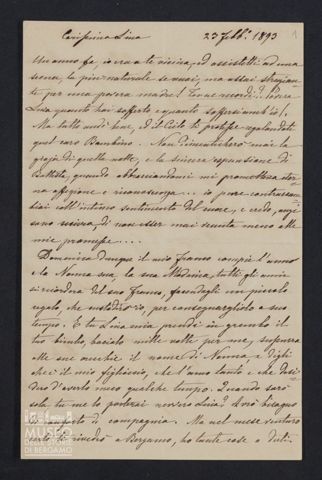 Carissima Lina 23 Febb.o 1893 1
Un anno fa io era a te vicina, ed assistetti ad una
scena, la più naturale se vuoi, ma assai strazian-
te per una povera madre! Te ne ricordi? Povera
Lina quanto hai sofferto e quanto soffersi anch'io!
Ma tutto andò bene, ed il Cielo te protesse regalandoti
quel caro Bambino. Non dimenticherò mai la
gioja di quella notte, e la sincera espansione di
Battista, quando abbracciandomi mi prometteva eter-
na affezione e riconoscenza.... io pure contraccam-
biai coll'intimo sentimento del cuore, e credo, anzi
sono sicura, di non esser mai venuta meno alle
mie promesse....
Domenica dunque il mio Franco compie l'anno
e la Nonna sua, la sua Madrina, tutti gli anni
si ricorderà del suo Franco, facendogli un piccolo
regalo, che custodirò io, per consegnarglielo a suo
tempo. E tu Lina mia prendi in grembo il
tuo bimbo, bacialo mille volte per me, susurra
alle sue orecchie il nome di Nonna, e digli
che è il mio figlioccio, che l'amo tanto e che desi-
dero d'averlo meco qualche tempo. Quando sarò
sola tu me lo porterai Lina? Avrò bisogno
di conforto di compagnia. Ma nel mese venturo
certo ti rivedrò a Bergamo, ho tante cose a dirti.
MUSEO
DELLE STORIE
DI BERGAMO